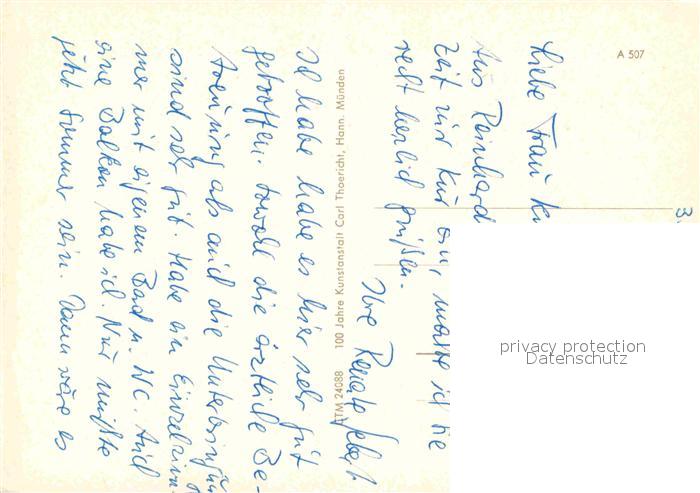 A 507
3.
Liebe Frau
Aus Reinhard
Zeit zur Kur bin, möchte ich Sie
recht herzlich grüßen.
Ihre Renate
100 Jahre Kunstanstalt Carl Thoericht, Hann. Münden
TM 24088
Ich habe habe es hier sehr gut
getroffen. Sowohl die ärztliche Be-
treuung als auch die Unterbringung
sind sehr gut. Habe ein Einzelzim-
mer mit eigenem Bad u. WC. Auch
eine Balkon habe ich. Nur müßte
jetzt Sommer sein. Dann wäre es
privacy protection
Datenschutz